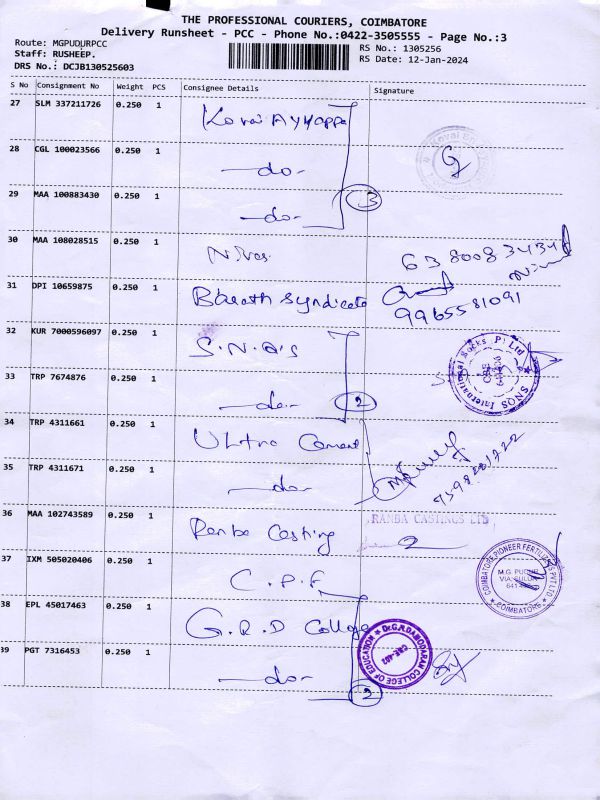 THE PROFESSIONAL COURIERS, COIMBATORE
Delivery Runsheet - PCC - Phone No.:0422-3505555 - Page No.:3
Route: MGPUDURPCC
Staff: RUSHEEP.
DRS No.: DCJB130525603
RS No.: 1305256
RS Date: 12-Jan-2024
S No Consignment No Weight PCS Consignee Details Signature
27 SLM 337211726 0.250 1 Kovai Ayyappa
28 CGL 100023566 0.250 1 -do-
29 MAA 100883430 0.250 1 -do- 3
30 MAA 108028515 0.250 1 Nivas
31 DPI 10659875 0.250 1 Bharath Syndicate 9965581091
32 KUR 7000596097 0.250 1 S.N.Q.S
33 TRP 7674876 0.250 1 -do- 2
SNQS International Socks P Ltd
34 TRP 4311661 0.250 1 Ultra Cement
35 TRP 4311671 0.250 1 -do-
36 MAA 102743589 0.250 1 Ramba Casting RAMBA CASTINGS LTD
2
37 IXM 505020406 0.250 1 C.P.F
COIMBATORE PIONEER FERTILIZERS PVT LTD
M.G. PUDUR
VIA. SULUR
COIMBATORE
38 EPL 45017463 0.250 1 G.R.D College
39 PGT 7316453 0.250 1 -do- 2
Dr.G.R.DAMODARAN COLLEGE OF EDUCATION